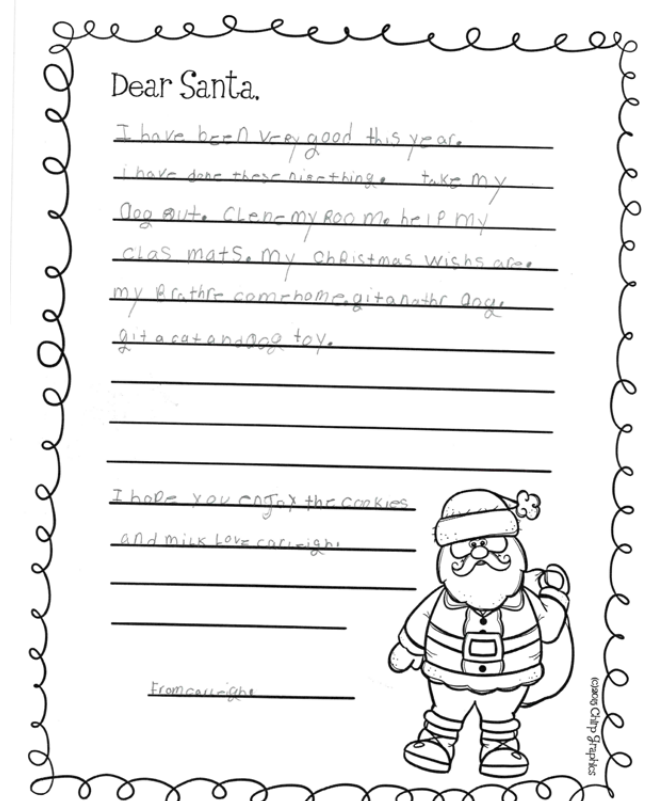 Dear Santa,
I have been very good this year.
i have done these nice thing. take my
dog out. Clene my Room. help my
clas mats. my Christmas wishs are.
my Brathre come home. git anathr dog.
git a cat and dog toy.
I hope you enjoy the cookies
and milk Love
From
(c)2015 Chirp Graphics